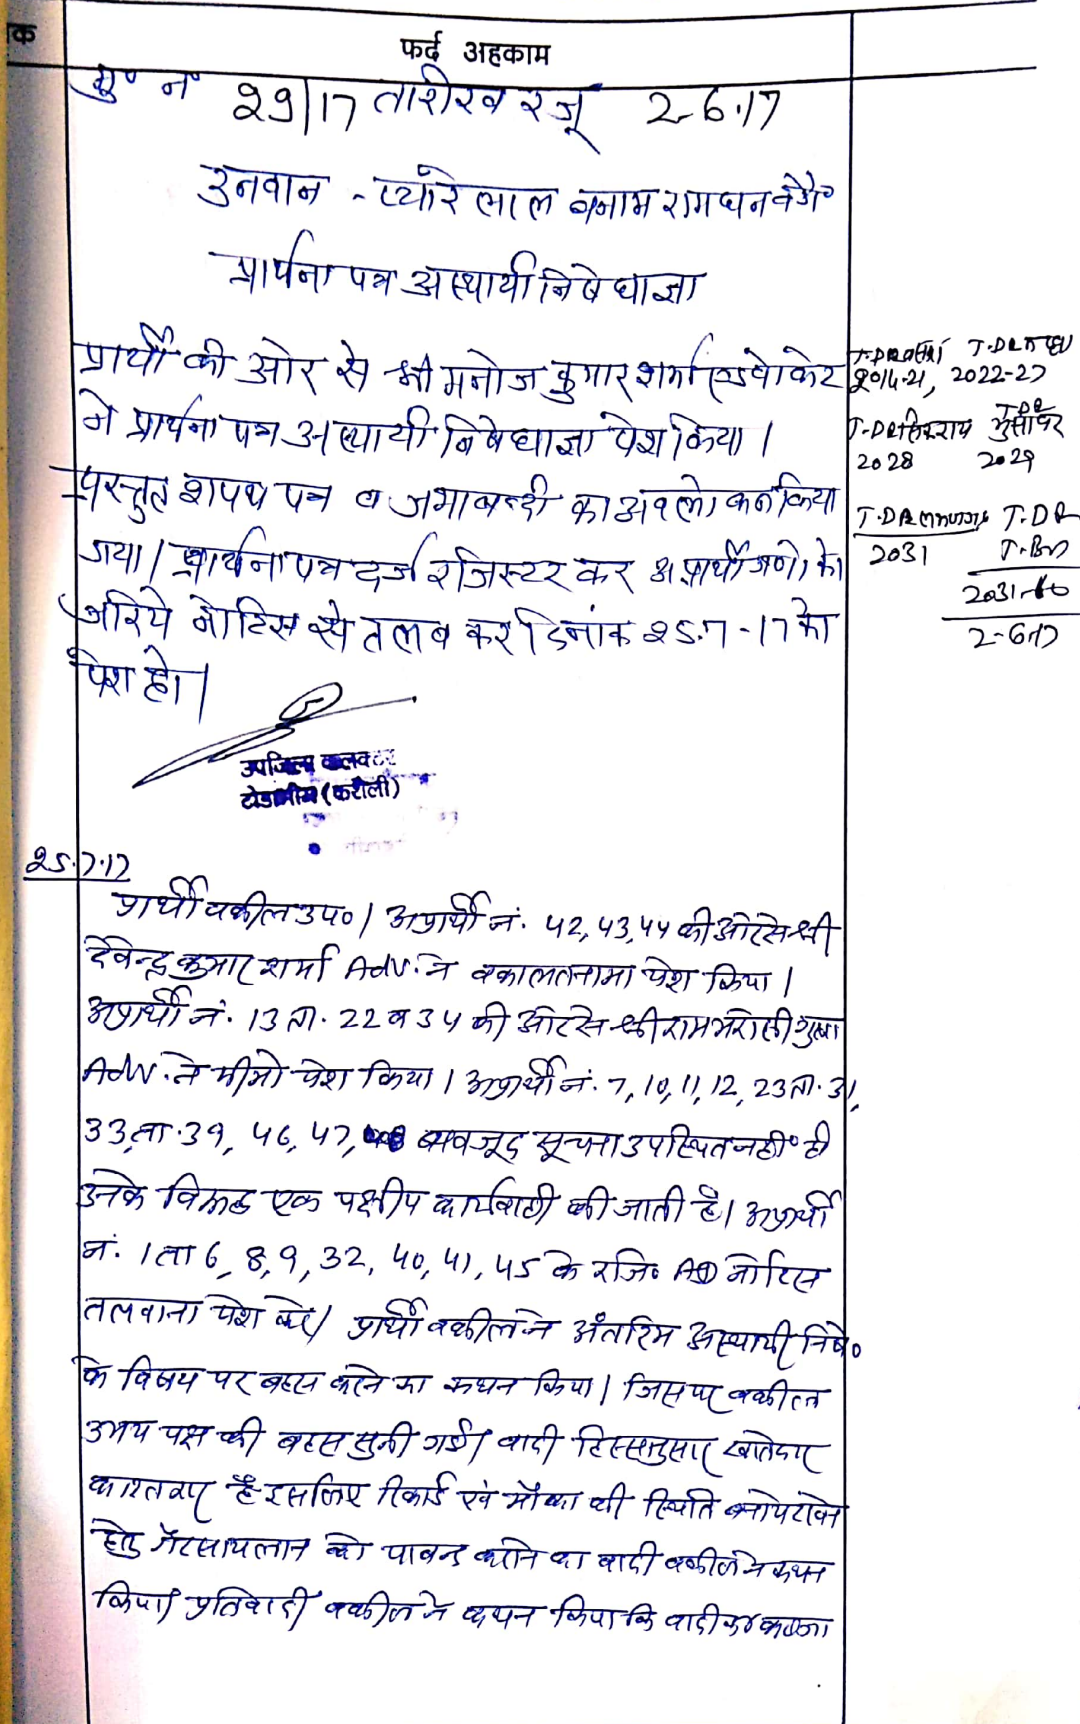 क
फर्द अहकाम
मु० नं० 29/17 तारीख रजू 2-6-17
उनवान - प्यारेलाल बनाम रामधन वगै०
प्रार्थना पत्र अस्थायी निषेधाज्ञा
प्रार्थी की ओर से श्री मनोज कुमार शर्मा एडवोकेट
ने प्रार्थना पत्र अस्थायी निषेधाज्ञा पेश किया।
प्रस्तुत शपथ पत्र व जमाबन्दी का अवलोकन किया
गया। प्रार्थना पत्र दर्ज रजिस्टर कर अप्रार्थीगणों को
जरिये नोटिस से तलब कर दिनांक 25-7-17 को
पेश हो।
T.DR T.DR
2014-21, 2022-27
T.DR T.DR
2028 2029
T.DR T.DR
2031
2-6-17
उपजिला कलक्टर
टोडाभीम (करौली)
25.7.17
प्रार्थी वकील उप०। अप्रार्थी नं. 42,43,44 की ओर से श्री
देवेन्द्र कुमार शर्मा Adv. ने वकालतनामा पेश किया।
अप्रार्थी नं. 13 ता. 22 व 34 की ओर से श्री रामभरोसी गुप्ता
Adv. ने मीमो पेश किया। अप्रार्थी नं. 7, 10, 11, 12, 23 ता. 31,
33, ता. 39, 46, 47, बावजूद सूचना उपस्थित नहीं है
उनके विरूद्ध एक पक्षीय कार्यवाही की जाती है। अप्रार्थी
नं. 1 ता 6, 8, 9, 32, 40, 41, 45 के रजि० AD नोटिस
तलवाना पेश करे। प्रार्थी वकील ने अंतरिम अस्थायी निषे०
के विषय पर बहस करने का कथन किया। जिस पर वकील
उभय पक्ष की बहस सुनी गई। वादी हिस्सानुसार खातेदार
काश्तकार है इसलिए रिकार्ड एवं मौका की स्थिति बनाये रखने
हेतु गैरसायलान को पाबन्द करने का वादी वकील ने कथन
किया। प्रतिवादी वकील ने कथन किया कि वादी का कब्जा